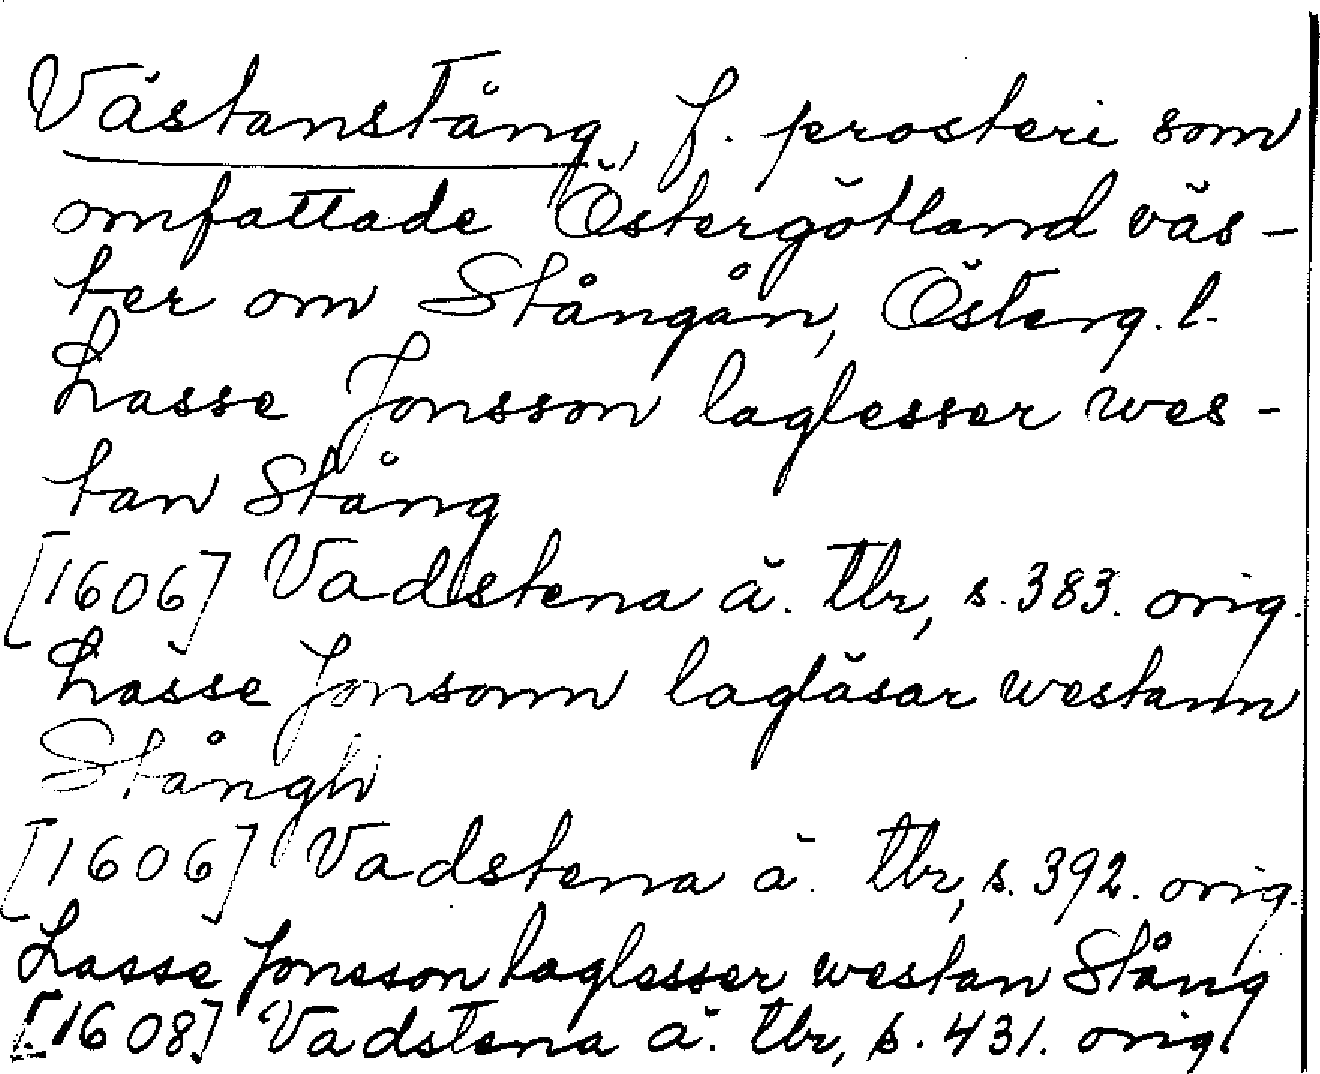 Västanstång, f. prosteri som
omfattade Östergötland väs-
ter om Stångån, Österg. l.
Lasse Jonsson laglesser wes-
tan Stång
[1606] Vadstena ä. tbr, s. 383. orig.
Lasse Jonsonn lagläsar westann
Stångh
[1606] Vadstena ä. tbr, s. 392. orig.
Lasse Jonsson laglesser westan Stång
[1608] Vadstena ä. tbr, s. 431. orig.